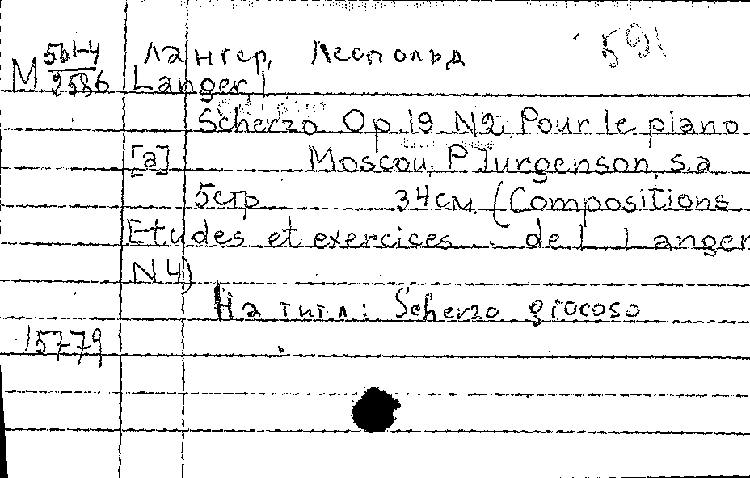 Лангер, Леопольд 591
M 561-4
2586 Langer l
Scherzo Op.19 N2 Pour le piano.
[a] Moscou, P. Jurgenson, s.a.
5стр 34см. (Compositions
Etudes et exercices... de L Langer
N4)
На титл: Scherzo giocoso
15779